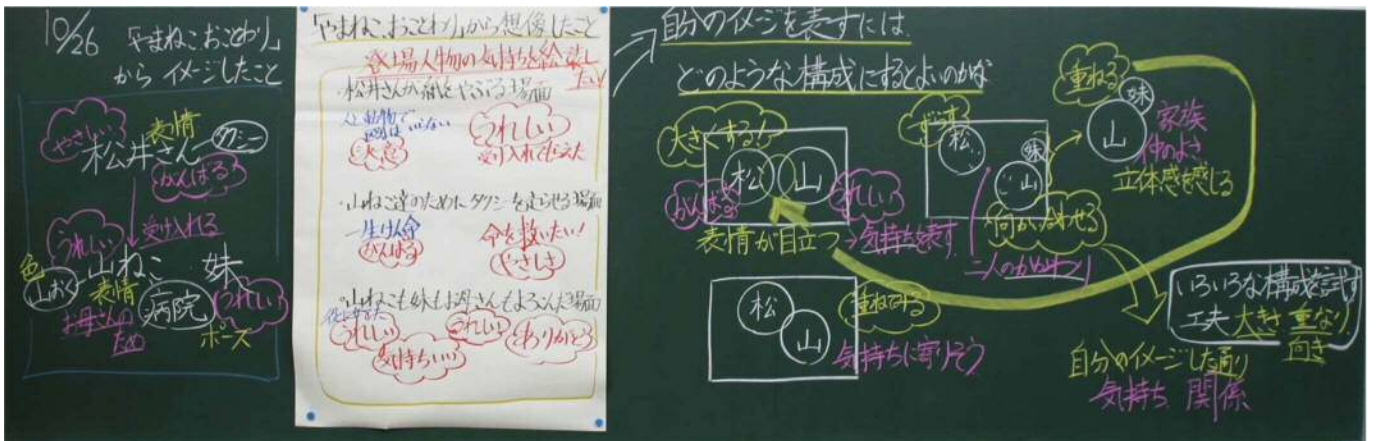 10/26 「やまねこおことわり」
からイメージしたこと
やさしい
表情
松井さん
タクシー
がんばる!
うれしい
受け入れる
色
山おく
山ねこ
妹
表情
病院
うれしい
お母さんの
ため
ポーズ
「やまねこおことわり」から想像したこと
登場人物の気持ちを絵に表し
たい
・松井さんが紙をやぶる場面
人と動物で
はいない
うれしい
受け入れてもらえた
・山ねこ達のためにタクシーを走らせる場面
一生けん命
がんばる
命を救いたい!
やさしさ
・山ねこも妹もお母さんもよろこんだ場面
うれしい
気持ちいい
うれしい
ありがとう
自分のイメージを表すには
どのような構成にするとよいのかな
大きくする!
松
山
がんばる
うれしい
表情が目立つ→気持ちを表す
ずらす
松
妹
山
何か合わせる
二人のかかわり
重ねる
妹
山
家族
仲のよさ
立体感を感じる
松
山
重ねてみる
気持ちに寄りそう
いろいろな構成を試す
工夫 大きさ 重なり
向き
自分のイメージした通り
気持ち 関係